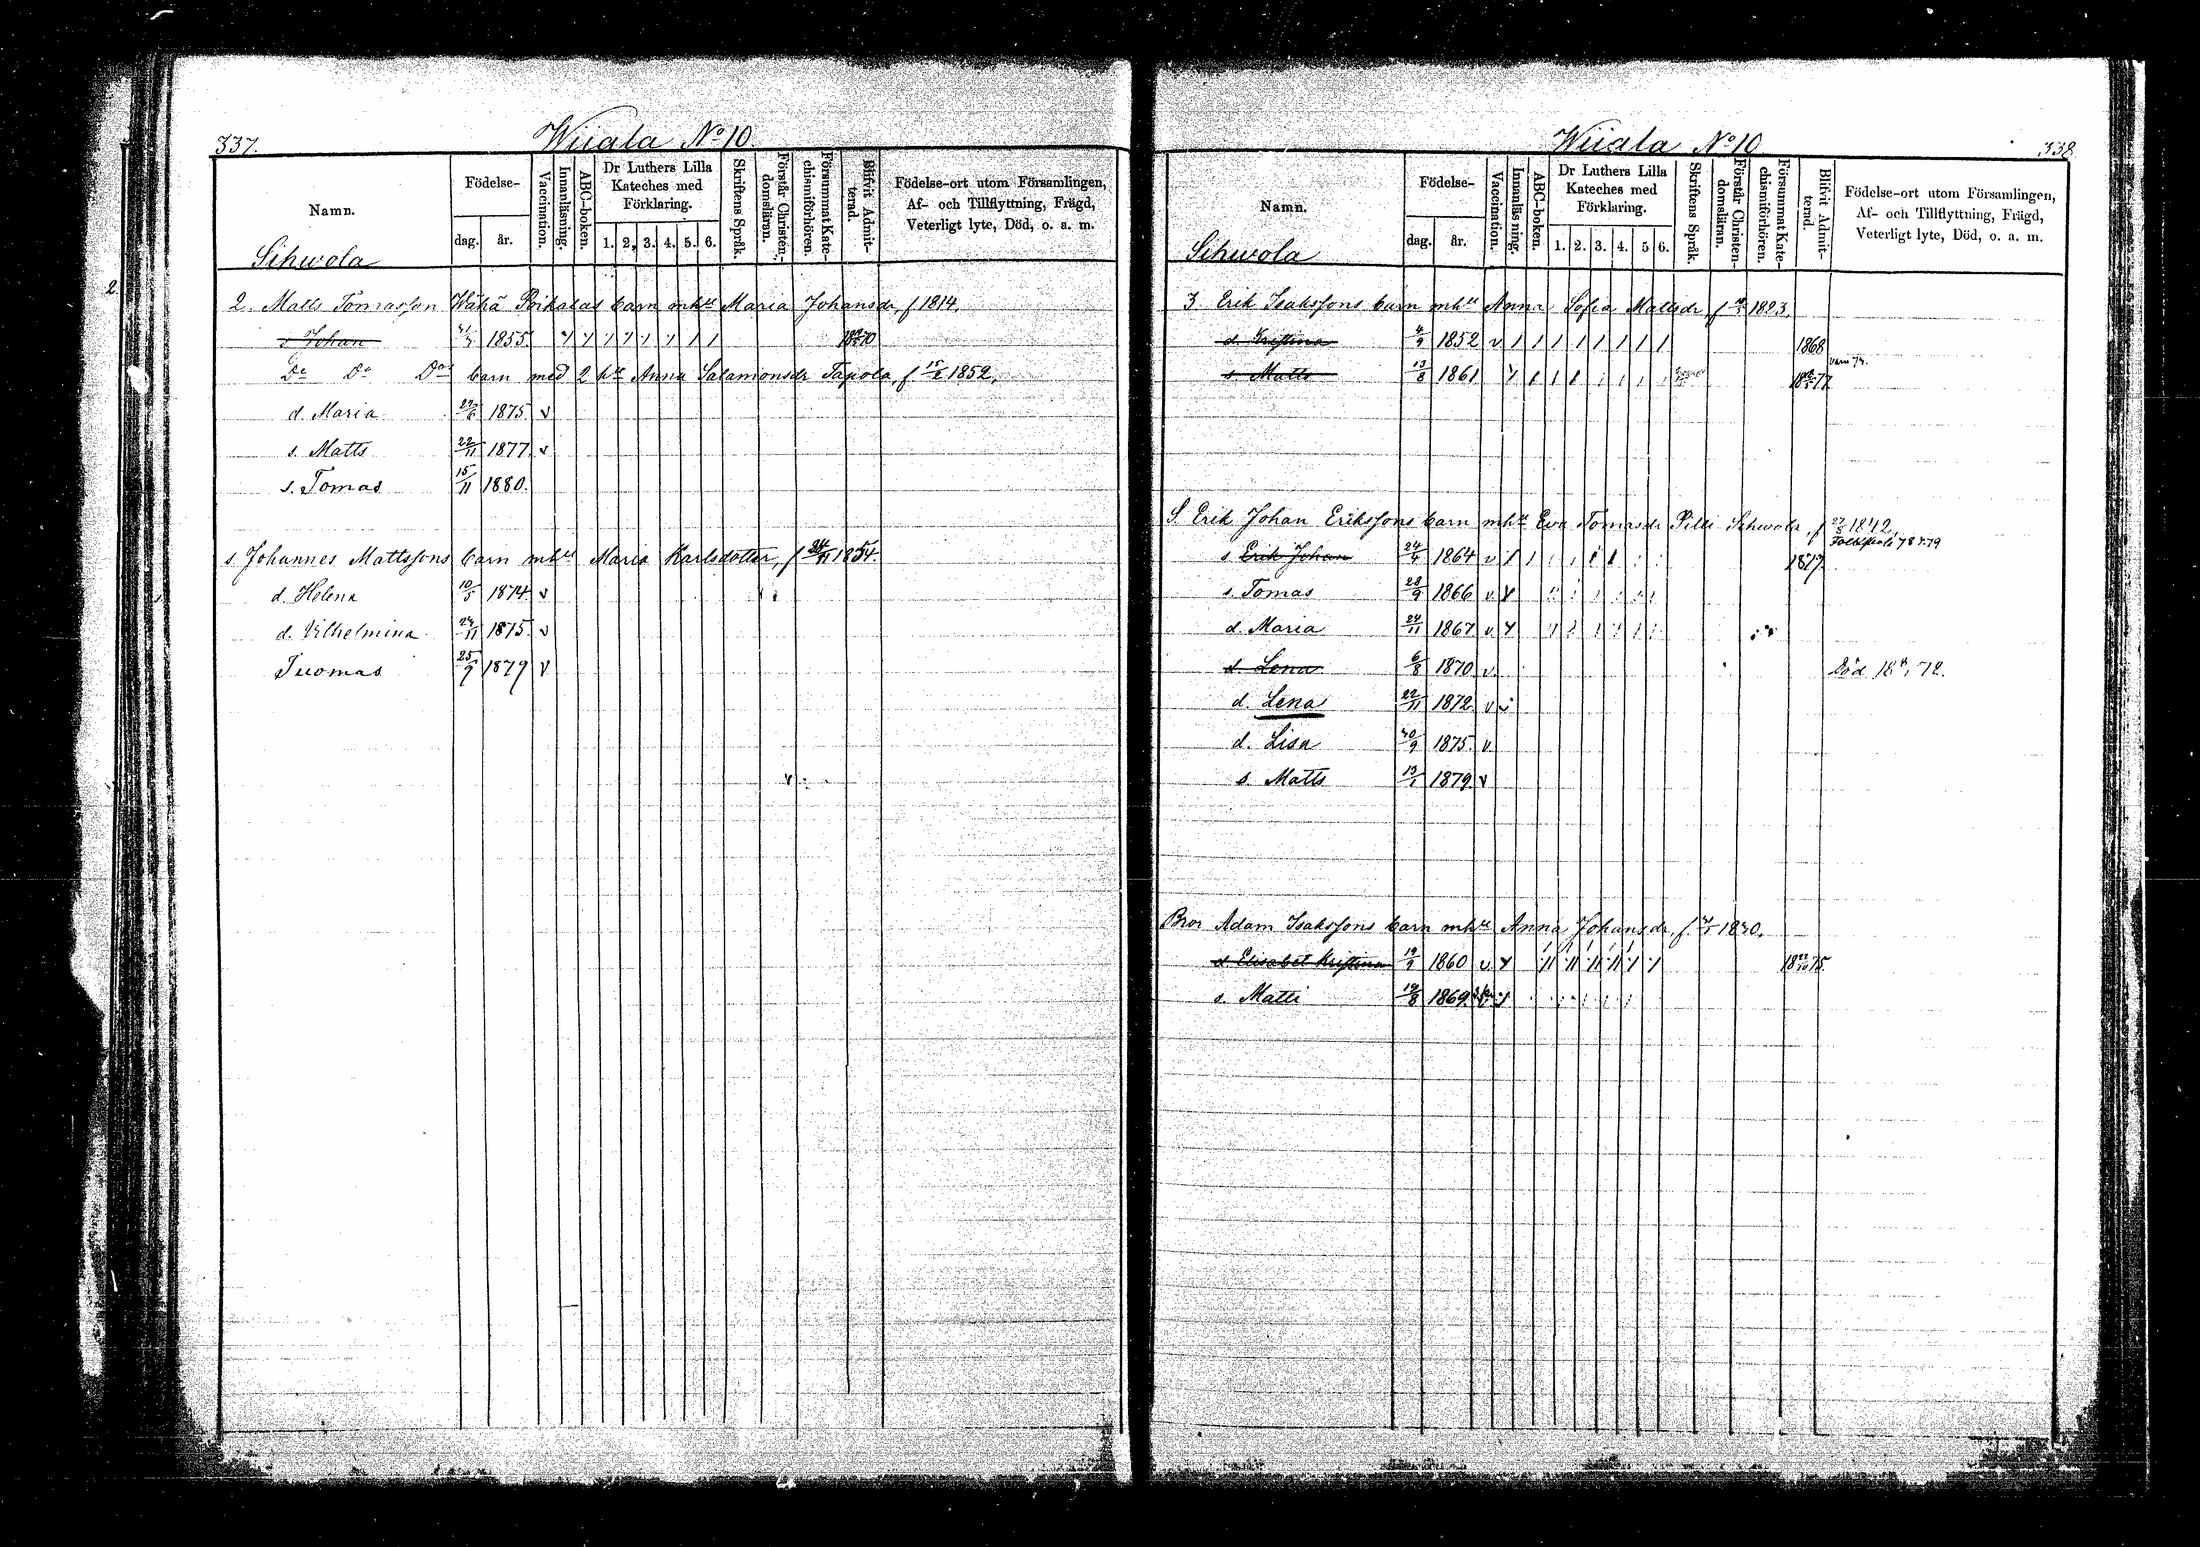 337.
Wiiala No 10.
Namn.
Födelse-
dag. år.
Vaccination.
Innanläsning.
ABC-boken.
Dr Luthers Lilla Kateches med Förklaring.
1. 2. 3. 4. 5. 6.
Skriftens Språk.
Förstår Christendomsläran.
Försummat Katechismiförhören.
Blifvit Admitterad.
Födelse-ort utom Församlingen, Af- och Tillflyttning, Frägd, Veterligt lyte, Död, o. a. m.
Sihwola
2. Matts Tomasson Wähä Poikalas barn mhu Maria Johansdr, f 1814.
s Johan 1855
Do Do Dos barn med 2 hu Anna Salamonsdr Tapola, f. 1852,
d. Maria 27/6 1875. v
s. Matts 22/11 1877 v
s. Tomas 15/11 1880.
s. Johannes Mattssons barn mhu Maria Karlsdotter, f 24/11 1854.
d. Helena 10/5 1874 v
d. Vilhelmina 1875. v
Tuomas 25/9 1879 v
338.
Wiiala No 10
Namn.
Födelse-
dag. år.
Vaccination.
Innanläsning.
ABC-boken.
Dr Luthers Lilla Kateches med Förklaring.
1. 2. 3. 4. 5 6.
Skriftens Språk.
Förstår Christendomsläran.
Försummat Katechismiförhören.
Blifvit Admitterad.
Födelse-ort utom Församlingen, Af- och Tillflyttning, Frägd, Veterligt lyte, Död, o. a. m.
Sihwola
3 Erik Isakssons barn mhu Anna Sofia Mattsdr f 1823.
d. Kristina 4/9 1852 v 1868
s. Matts 13/8 1861
S. Erik Johan Erikssons barn mhu Eva Tomasdr Pilli Sihwola, f 1842,
s. Erik Johan 24/4 1864 v
s. Tomas 28/9 1866 v
d. Maria 24/11 1867 v
d. Lena 6/8 1870 v Död 72.
d. Lena 22/11 1872 v
d. Lisa 1875. v
s. Matts 13/1 1879 v
Bror Adam Isakssons barn mhu Anna Johansdr, f. 1830.
d Elisabet Kristina 19/9 1860 v
s. Matti 19/8 1869